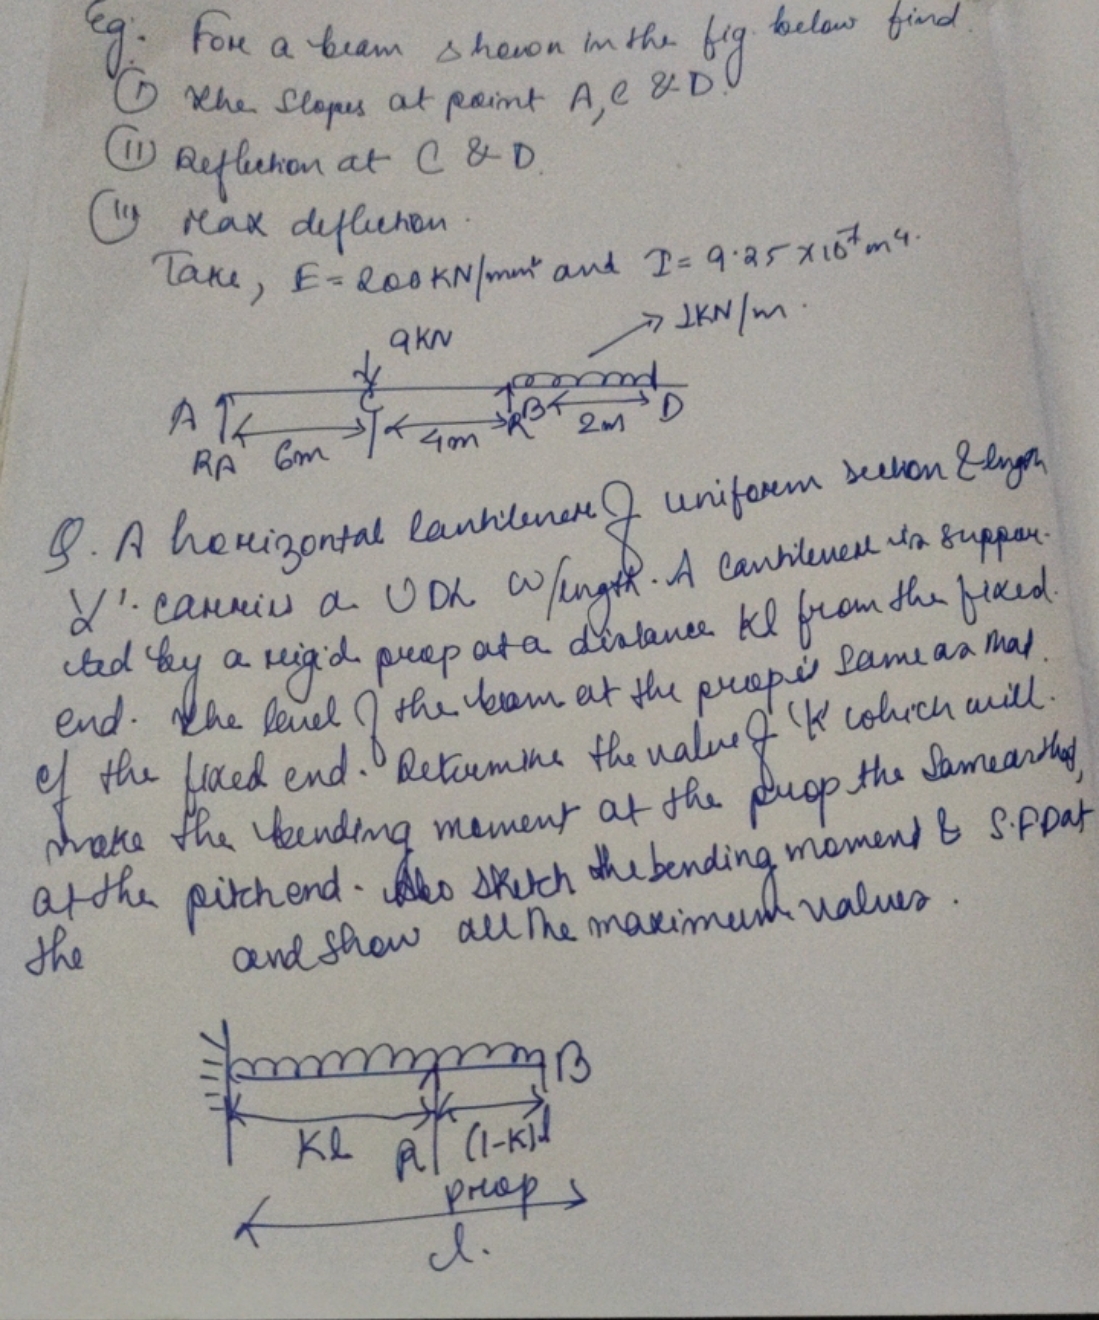 Eg. For a beam shown in the fig. below find.
(i) The Slopes at point A, C & D.
(ii) Deflection at C & D.
(iii) Max deflection.
Take, E = 200 KN/mm² and I = 9.25 x 10⁻⁷ m⁴.
1KN/m.
9KN
A C B D
RA 6m 4m R 2m
Q. A horizontal Cantilever of uniform section & length
'l'. carries a UDL w/length. A cantilever is suppor-
ted by a rigid prop at a distance kl from the fixed.
end. The level of the beam at the prop is Same as that.
of the fixed end. Determine the value of 'k' which will.
make the bending moment at the prop the Same as that,
at the pitch end. Also Sketch the bending moment & S.F.D at
the and show all the maximum values.
B
Kl R (1-K)l
prop
l.